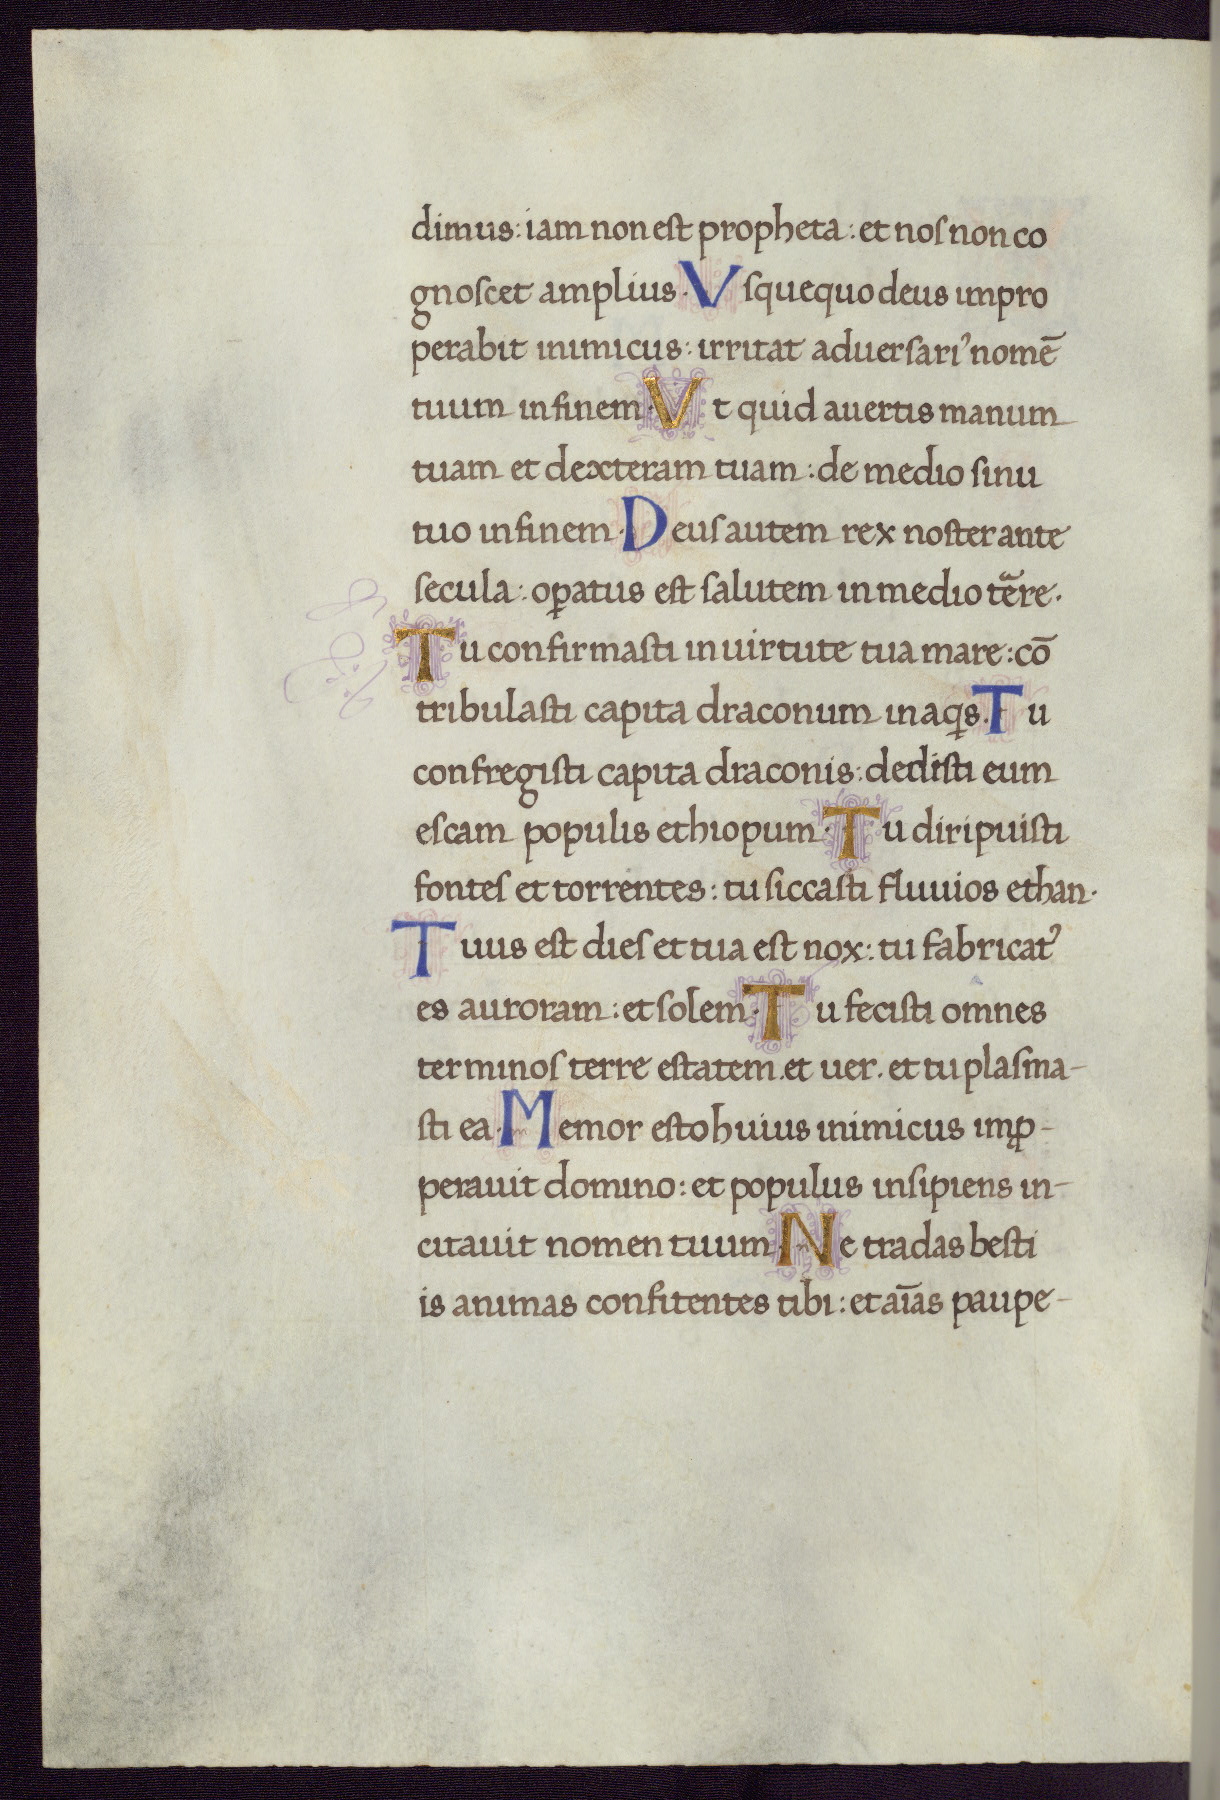 dimus: iam non est propheta: et nos non co
gnoscet amplius. Vsquequo deus impro
perabit inimicus: irritat aduersari᾽ nomē
tuum in finem. Vt quid auertis manum
tuam et dexteram tuam: de medio sinu
tuo in finem. Deus autem rex noster ante
secula: oꝑatus est salutem in medio terre.
Tu confirmasti in uirtute tua mare: cō
tribulasti capita draconum in aqs. Tu
confregisti capita draconis: dedisti eum
escam populis ethiopum. Tu diripuisti
fontes et torrentes: tu siccasti fluuios ethan.
Tuus est dies et tua est nox: tu fabricat᾽
es auroram: et solem. Tu fecisti omnes
terminos terre estatem. et uer. et tu plasma-
sti ea. Memor esto huius inimicus imꝓ-
perauit domino: et populus insipiens in-
citauit nomen tuum. Ne tradas besti
is animas confitentes tibi: et aīas paupe-